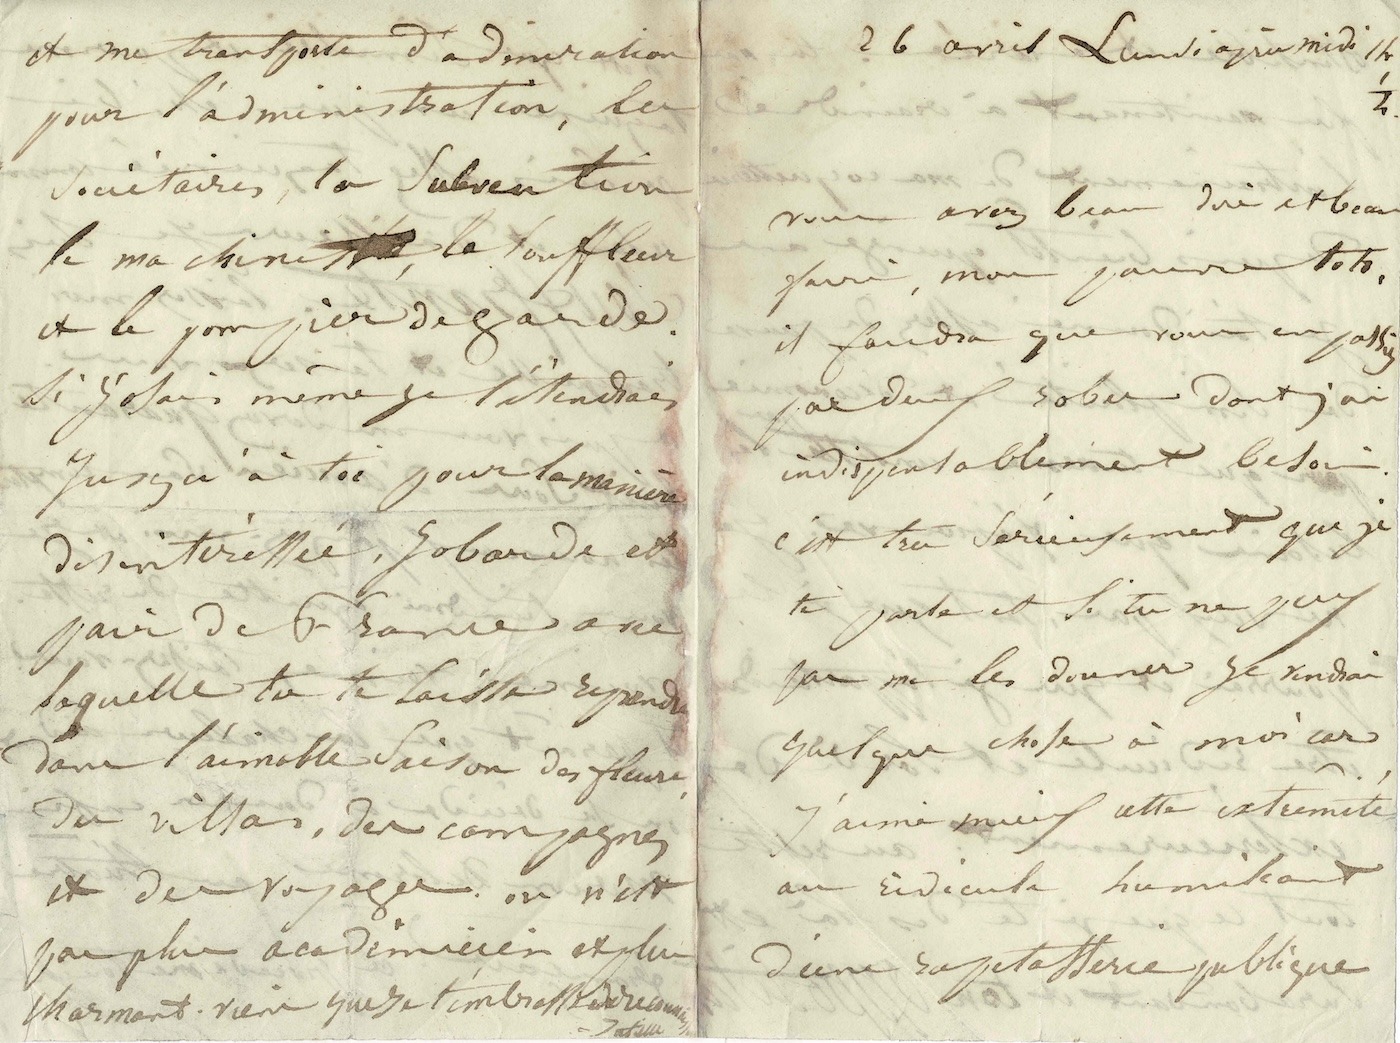 et me transporte d'admiration
pour l'administration, les
sociétaires, la subvention
le machiniste, le souffleur
et le pompier de garde.
Si j'osais même je l'étendrais
jusqu'à toi pour la manière
désintéressée, jobarde et
pair de France avec
laquelle tu te laisse répendre
dans l'aimable saison des fleurs,
des villas, des campagnes
et des voyages. on n'est
pas plus académicien et plus
charmant. viens que je t'embrasse
Juliette
26 avril Lundi après midi 1h ½
vous avez beau dire et beau
faire, mon pauvre toto,
il faudra que vous en passiez
par deux robes dont j'ai
indispensablement besoin.
c'est très sérieusement que je
te parle et si tu ne peux
pas me les donner je vendrai
quelque chose à moi car
j'aime mieux cette extrêmité
au ridicule humiliant
d'une rapetasserie publique